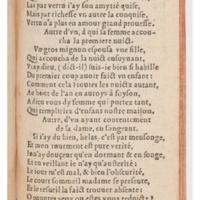 Las par vertu i'ay son amytié quise,
Mais par richesse vn autre la conquise,
Vertu n'a plus en amour grand proüesse.
Autre d'vn, à qui sa femme accou-
cha la premiere nuict.
Vn gros mignon espousa vne fille,
Qui accoucha de la nuict ensuyuant,
Vray dieu, (dict-il) suis-ie bien si habille
Du premier coup auoir faict vn enfant?
Comment cela? toutes les nuictz autant
Au bout de l'an en auroys à foyson,
A dieu vous dy femme qui portez tant,
Qui rempliriez d'enfans nostre maison.
Autre, d'vn ayant contentement
de sa dame, en songeant.
Si i'ay du bien, helas, c'est par mensonge,
Et mon tourment est pure verité,
I'ay douceur qu'en dormant & en songe,
Et en veillant ie n'ay qu'austerité:
Le iour m'est mal, & bien l'obscurité,
Le court sommeil ma dame me presente,
Et le resueil la faict trouuer absente: